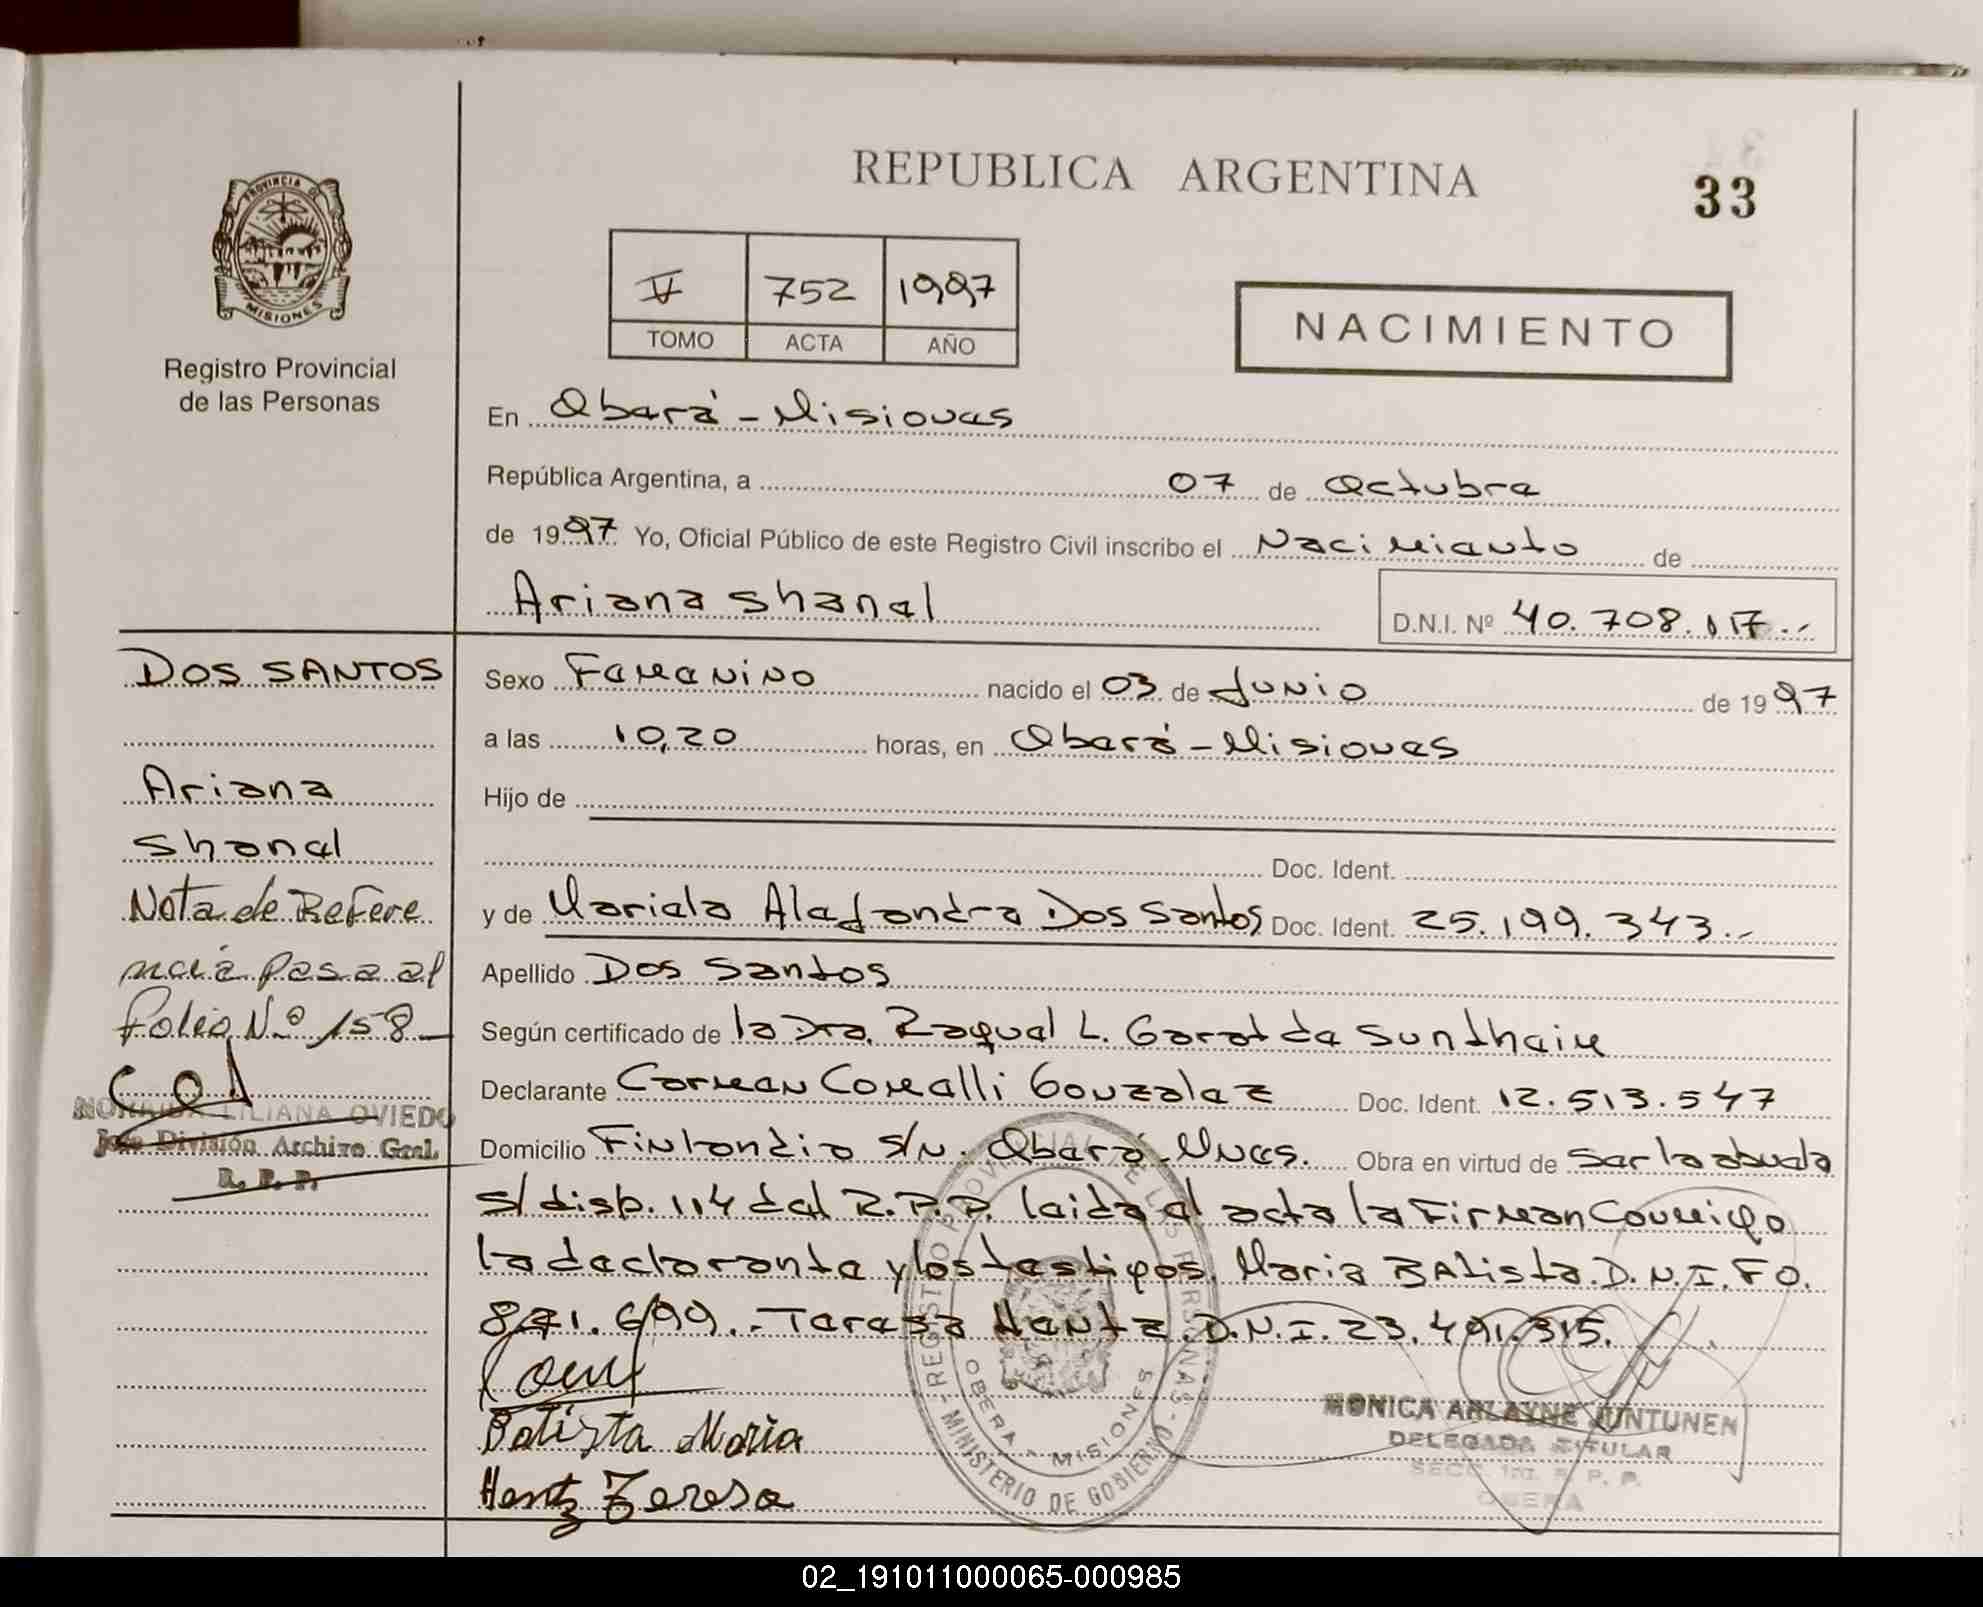 REPUBLICA ARGENTINA
33
PROVINCIA DE
MISIONES
Registro Provincial
de las Personas
V 752 1997
TOMO ACTA AÑO
NACIMIENTO
En Oberá - Misiones
República Argentina, a 07 de Octubre
de 1997 Yo, Oficial Público de este Registro Civil inscribo el Nacimiento de
Ariana Shanel
D.N.I. Nº 40.708.117.-
DOS SANTOS
Ariana
Shanel
Nota de Refere
ncia pasa al
Folio N.º 158-
LILIANA OVIEDO
Jefe División Archivo Gral.
R. P. P.
Sexo Femenino nacido el 03 de Junio de 1997
a las 10,20 horas, en Oberá - Misiones
Hijo de
Doc. Ident.
y de Mariela Alejandra Dos Santos Doc. Ident. 25.199.343.-
Apellido Dos Santos
Según certificado de la Dra. Raquel L. Garat de Sundheim
Declarante Carmen Comelli Gonzalez Doc. Ident. 12.513.547
Domicilio Finlandia s/n. Oberá - Mnes. Obra en virtud de ser la abuela
s/ disp. 114 del R.P.P. leida el acta la Firman Conmigo
la declarante y los testigos. Maria BAtista. D.N.I. F0.
871.699.- Teresa Hentz D.N.I. 23.491.315.
Batista Maria
Hentz Teresa
REGISTRO PROVINCIAL DE LAS PERSONAS
OBERA - MISIONES
MINISTERIO DE GOBIERNO
MONICA ARLAYNE JUNTUNEN
DELEGADA TITULAR
SECC. 1ra. R. P. P.
OBERA
02_191011000065-000985